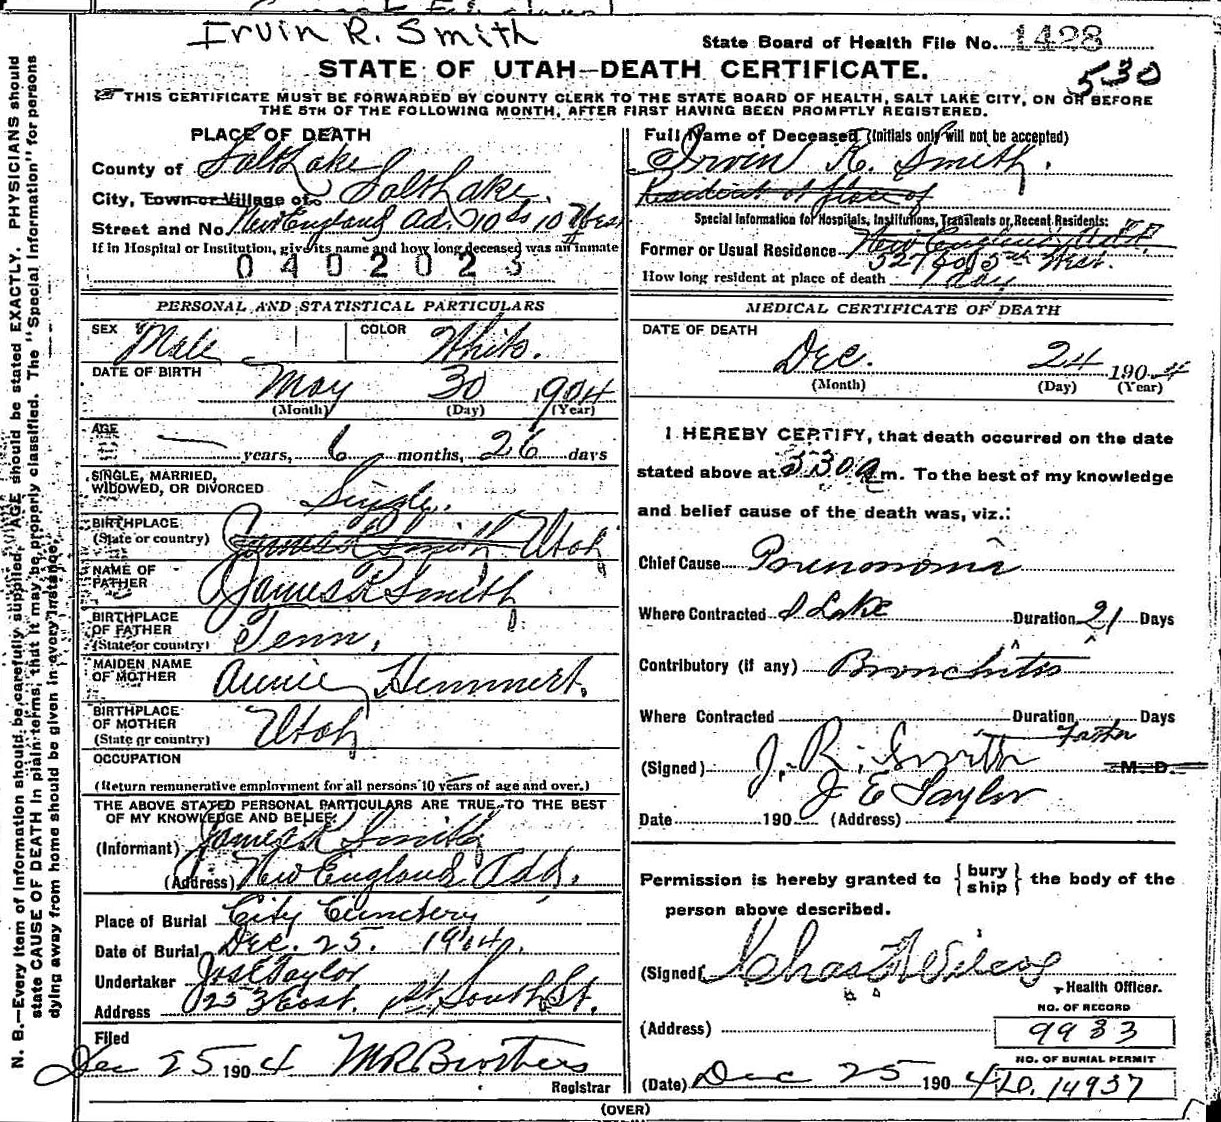 Irvin R. Smith
State Board of Health File No. 1428
530
STATE OF UTAH—DEATH CERTIFICATE.
THIS CERTIFICATE MUST BE FORWARDED BY COUNTY CLERK TO THE STATE BOARD OF HEALTH, SALT LAKE CITY, ON OR BEFORE
THE 5TH OF THE FOLLOWING MONTH, AFTER FIRST HAVING BEEN PROMPTLY REGISTERED.
N. B.—Every item of information should be carefully supplied. AGE should be stated EXACTLY. PHYSICIANS should
state CAUSE OF DEATH in plain terms, that it may be properly classified. The "Special Information" for persons
dying away from home should be given in every instance.
PLACE OF DEATH
County of Salt Lake
City, Town or Village of Salt Lake
Street and No. New England Ad. 10 So 10 West
If in Hospital or Institution, give its name and how long deceased was an inmate
0402023
Full Name of Deceased (Initials only will not be accepted)
Irvin R. Smith.
Resident at place of
Special Information for Hospitals, Institutions, Transients or Recent Residents:
Former or Usual Residence New England Add.
527 So 5th West.
How long resident at place of death
PERSONAL AND STATISTICAL PARTICULARS
SEX Male COLOR White.
DATE OF BIRTH May 30 1904
(Month) (Day) (Year)
AGE — years, 6 months, 26 days
SINGLE, MARRIED,
WIDOWED, OR DIVORCED Single.
BIRTHPLACE
(State or country) James R Smith Utah
NAME OF
FATHER James R Smith
BIRTHPLACE
OF FATHER
(State or country) Tenn.
MAIDEN NAME
OF MOTHER Annie Hemmert.
BIRTHPLACE
OF MOTHER
(State or country) Utah
OCCUPATION
(Return remunerative employment for all persons 10 years of age and over.)
THE ABOVE STATED PERSONAL PARTICULARS ARE TRUE TO THE BEST
OF MY KNOWLEDGE AND BELIEF
(Informant) James R Smith
(Address) New England Add.
Place of Burial City Cemetery
Date of Burial Dec. 25. 1904.
Undertaker Jos E Taylor
Address 253 East 1st South St.
Filed
Dec 25 1904 M R Brothers
Registrar
MEDICAL CERTIFICATE OF DEATH
DATE OF DEATH
Dec. 24 1904
(Month) (Day) (Year)
I HEREBY CERTIFY, that death occurred on the date
stated above at 330 a m. To the best of my knowledge
and belief cause of the death was, viz.:
Chief Cause Pneunomia
Where Contracted S Lake Duration 21 Days
Contributory (if any) Bronchitis
Where Contracted Duration Days
Father
(Signed) J. R. Smith M. D.
J E Taylor
Date 190 (Address)
Permission is hereby granted to {bury ship} the body of the
person above described.
(Signed) Chas F Wilcox
Health Officer.
(Address)
NO. OF RECORD
9933
NO. OF BURIAL PERMIT
(Date) Dec 25 1904 14937
(OVER)